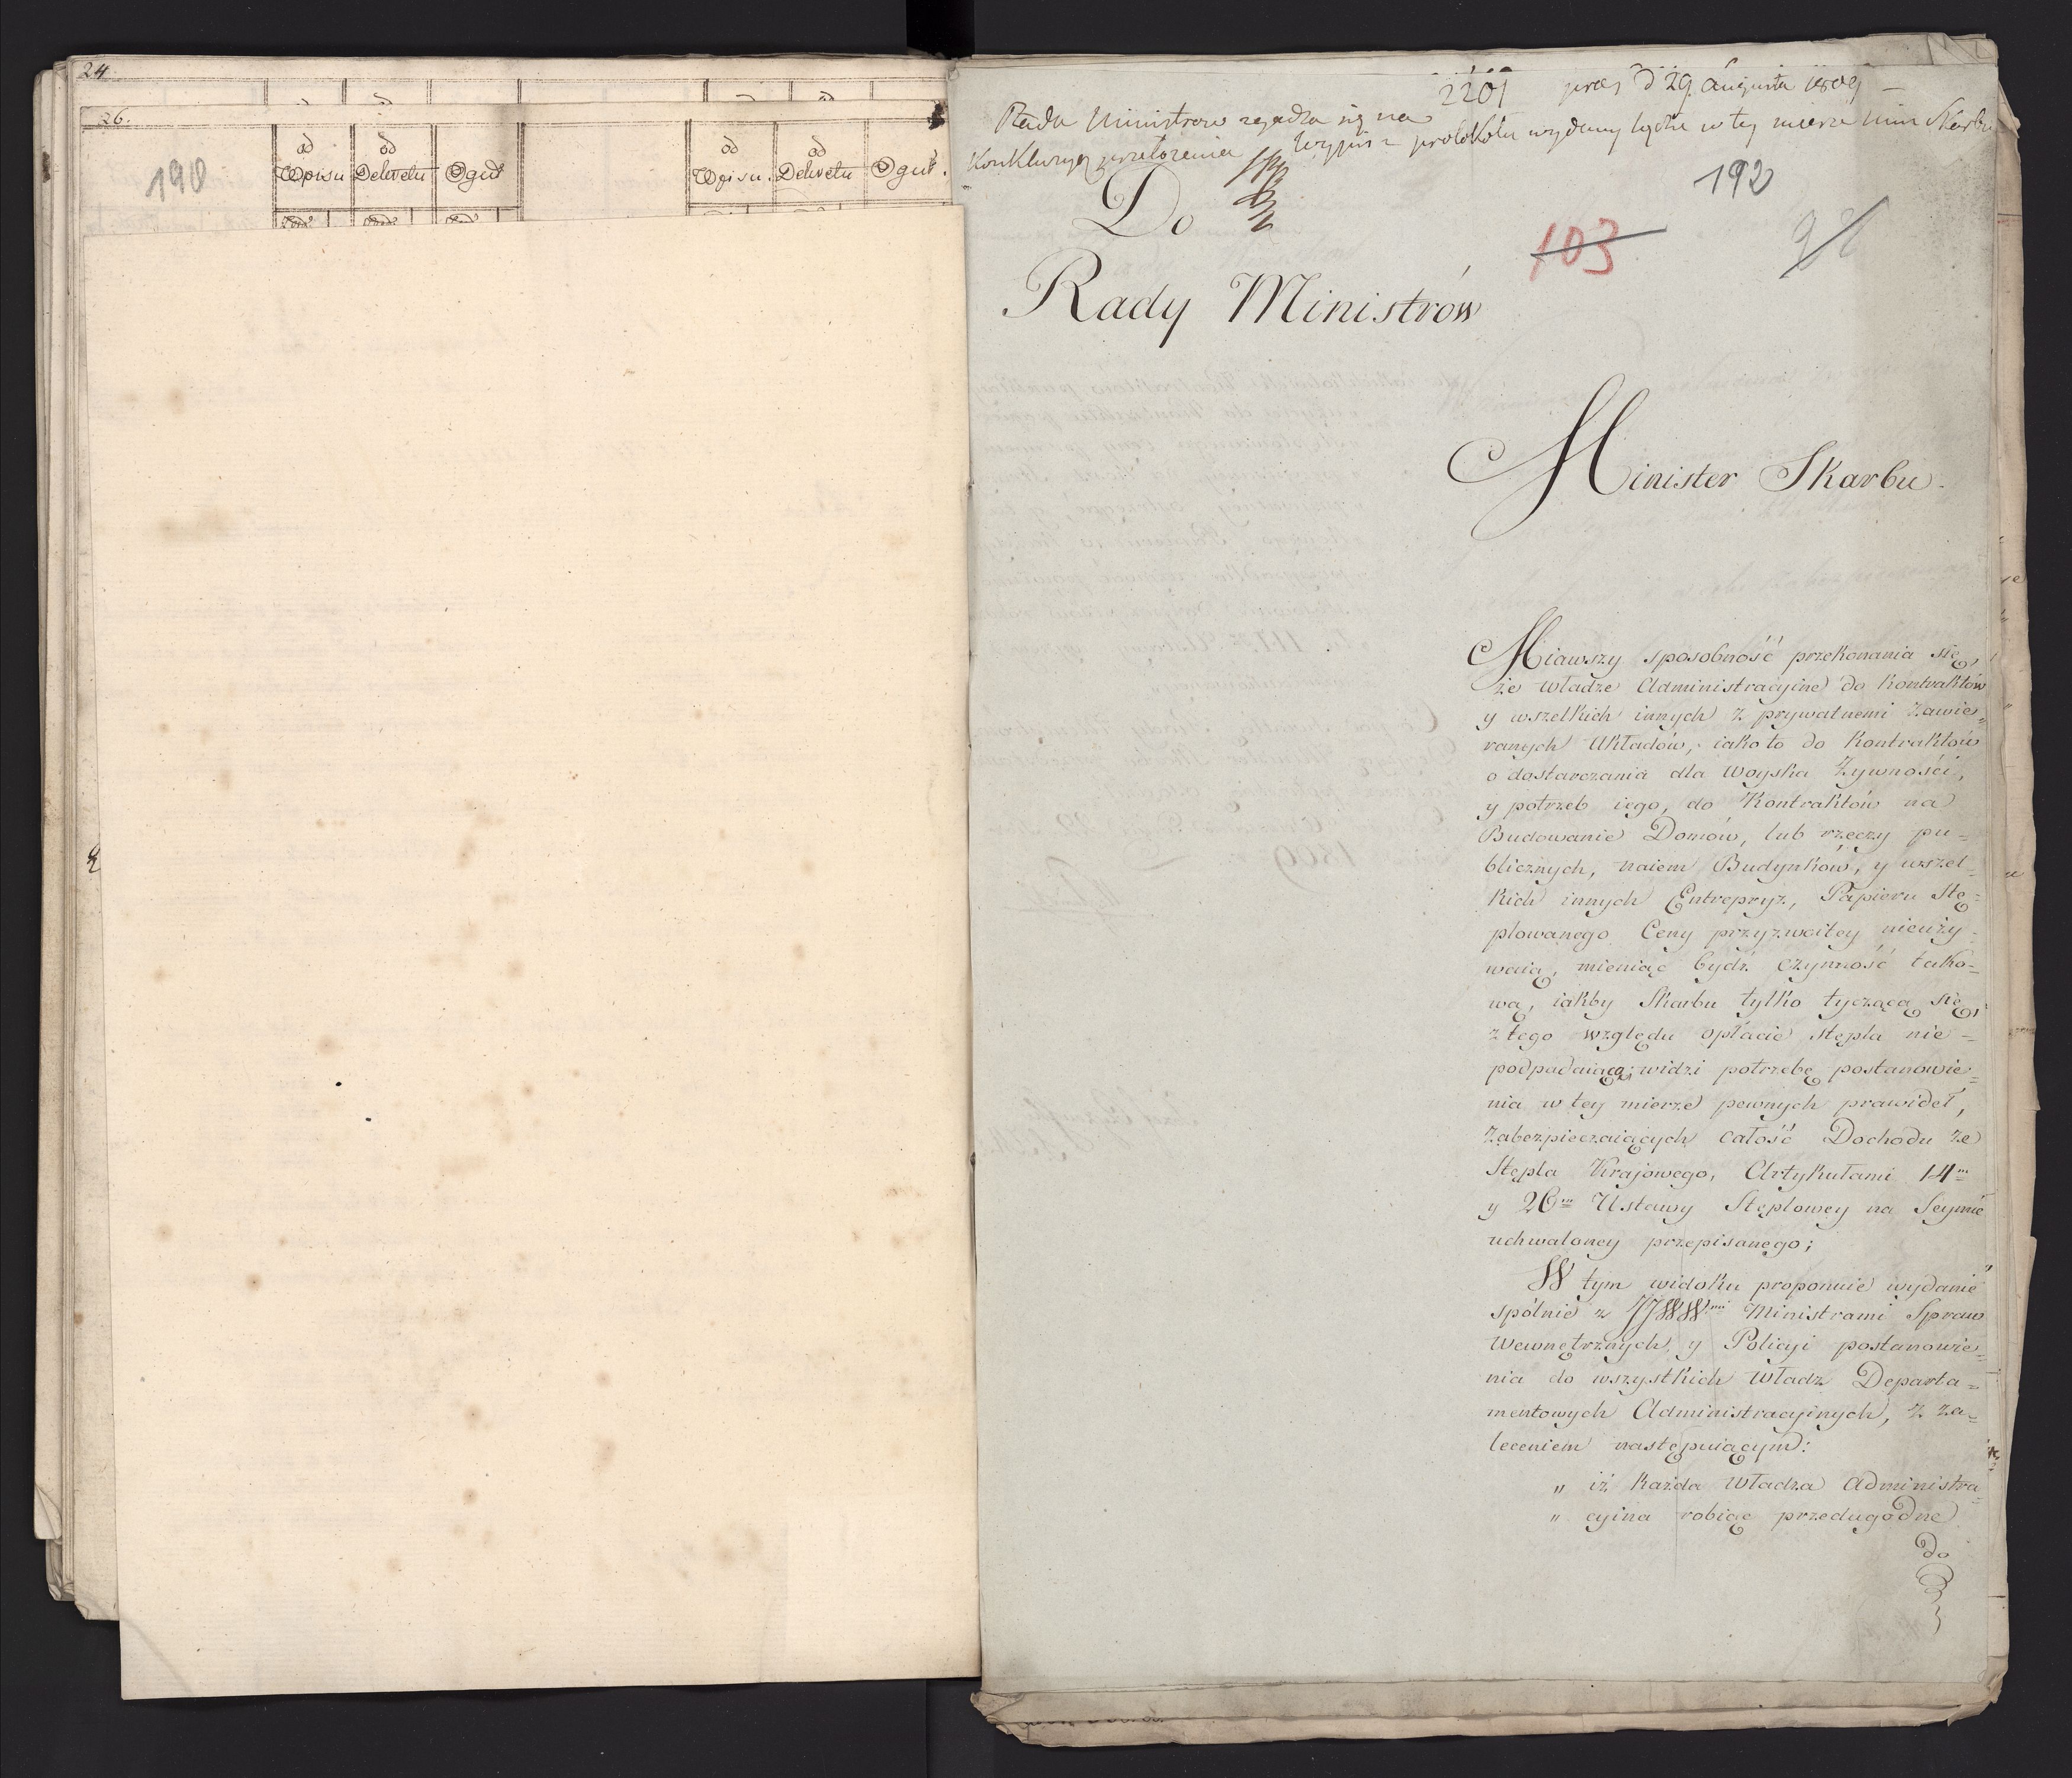 24.
26.
190
od Wpisu
od Dekretu
Ogół
od Wpisu.
od Dekretu
Ogół.
2201 præs d 29 Augusta 1809 –
Rada Ministrow zgadza się na
Konkluzyą przełożenia Wypis z protokołu wydany będzie w tey mierze Min Skarbu
192
103
98
Do
Rady Ministrów
Minister Skarbu.
Miawszy sposobność przekonania się,
że Władze Administracyine do Kontraktów
y wszelkich innych z prywatnemi zawie=
ranych Układów, iako to do Kontraktów
o dostarczania dla Woyska Żywności,
y potrzeb iego, do Kontraktów na
Budowanie Domów, lub rzeczy pu=
blicznych, naiem Budynków, y wszel=
kich innych Entrepryz, Papieru Stę=
plowanego Ceny przyzwoitey nieuży=
waią, mieniąc bydź czynność tako=
wą, iakby Skarbu tylko tyczącą się,
z tego względu opłacie stępla nie=
podpadaiącą; widzi potrzebę postanowie=
nia w tey mierze pewnych prawideł,
zabezpieczaiących całość Dochodu ze
Stępla Krajowego, Artykułami 14m
y 26m Ustawy Stęplowey na Seymie
uchwaloney przepisanego;
W tym widoku proponuie wydanie
spólnie z JJWWmi Ministrami Spraw
Wewnętrznych y Policyi postanowie=
nia do wszystkich Władz Departa=
mentowych Administracyinych, z za=
leceniem następuiącym:
„ iż każda Władza Administra=
„ cyina robiąc przedugodne
do